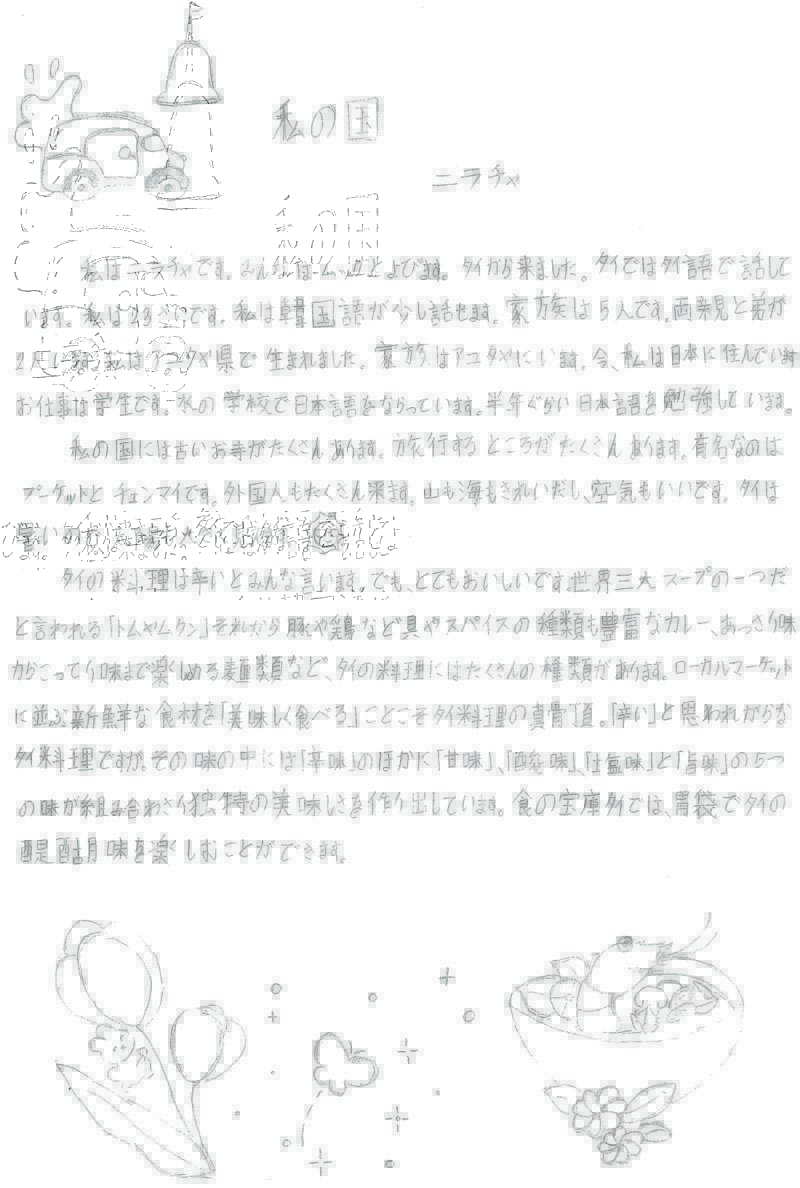 私の国
ニラチャ
私はニラチャです。みんなは とよびます。タイから来ました。タイではタイ語で話して
います。私は です。私は韓国語が少し話せます。家族は5人です。両親と弟が
2人 私はアユタヤ県で生まれました。家族はアユタヤにいます。今、私は日本に住んでいます
お仕事は学生です。私の学校で日本語をならっています。半年ぐらい日本語を勉強しています。
私の国には古いお寺がたくさんあります。旅行するところがたくさんあります。有名なのは
プーケットとチェンマイです。外国人もたくさん来ます。山も海もきれいだし、空気もいいです。タイは
暑い
タイの料理は辛いとみんな言います。でも、とてもおいしいです。世界三大スープの一つだ
と言われる「トムヤムクン」それから豚や鶏など具やスパイスの種類も豊富なカレー、あっさり味
からこってり味まで楽しめる麺類など、タイの料理にはたくさんの種類があります。ローカルマーケット
に並ぶ新鮮な食材を「美味しく食べる」ことこそタイ料理の真骨頂。「辛い」と思われがちな
タイ料理ですが。その味の中には「辛味」のほかに「甘味」、「酸味」、「塩味」と「旨味」の5つ
の味が組み合わさり独特の美味しさを作り出しています。食の宝庫タイでは、胃袋でタイの
醍醐味を楽しむことができます。